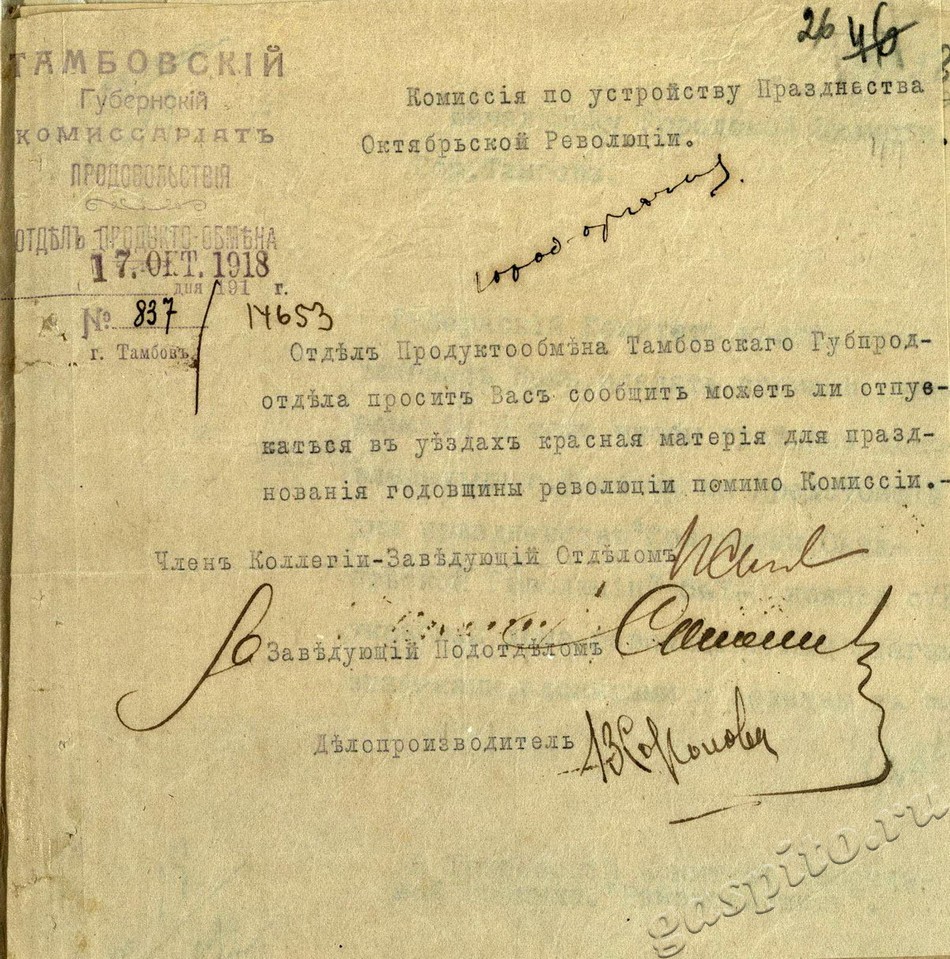 26 46
ТАМБОВСКІЙ
Губернскій
КОМИССАРІАТЪ
ПРОДОВОЛЬСТВІЯ
ОТДѢЛЪ ПРОДУКТО-ОБМѢНА
17. ОКТ. 1918
дня 191 г.
№ 837 / 14653
г. Тамбовъ
Комиссія по устройству Празднества
Октябрьской Революціи.
Отдѣлъ Продуктообмѣна Тамбовскаго Губпрод-
отдѣла проситъ Васъ сообщить можетъ ли отпус-
каться въ уѣздахъ красная матерія для празд-
нованія годовщины революціи помимо Комиссіи.-
Членъ Коллегіи-Завѣдующій Отдѣломъ
Завѣдующій Подотдѣломъ
Дѣлопроизводитель
gaspito.ru